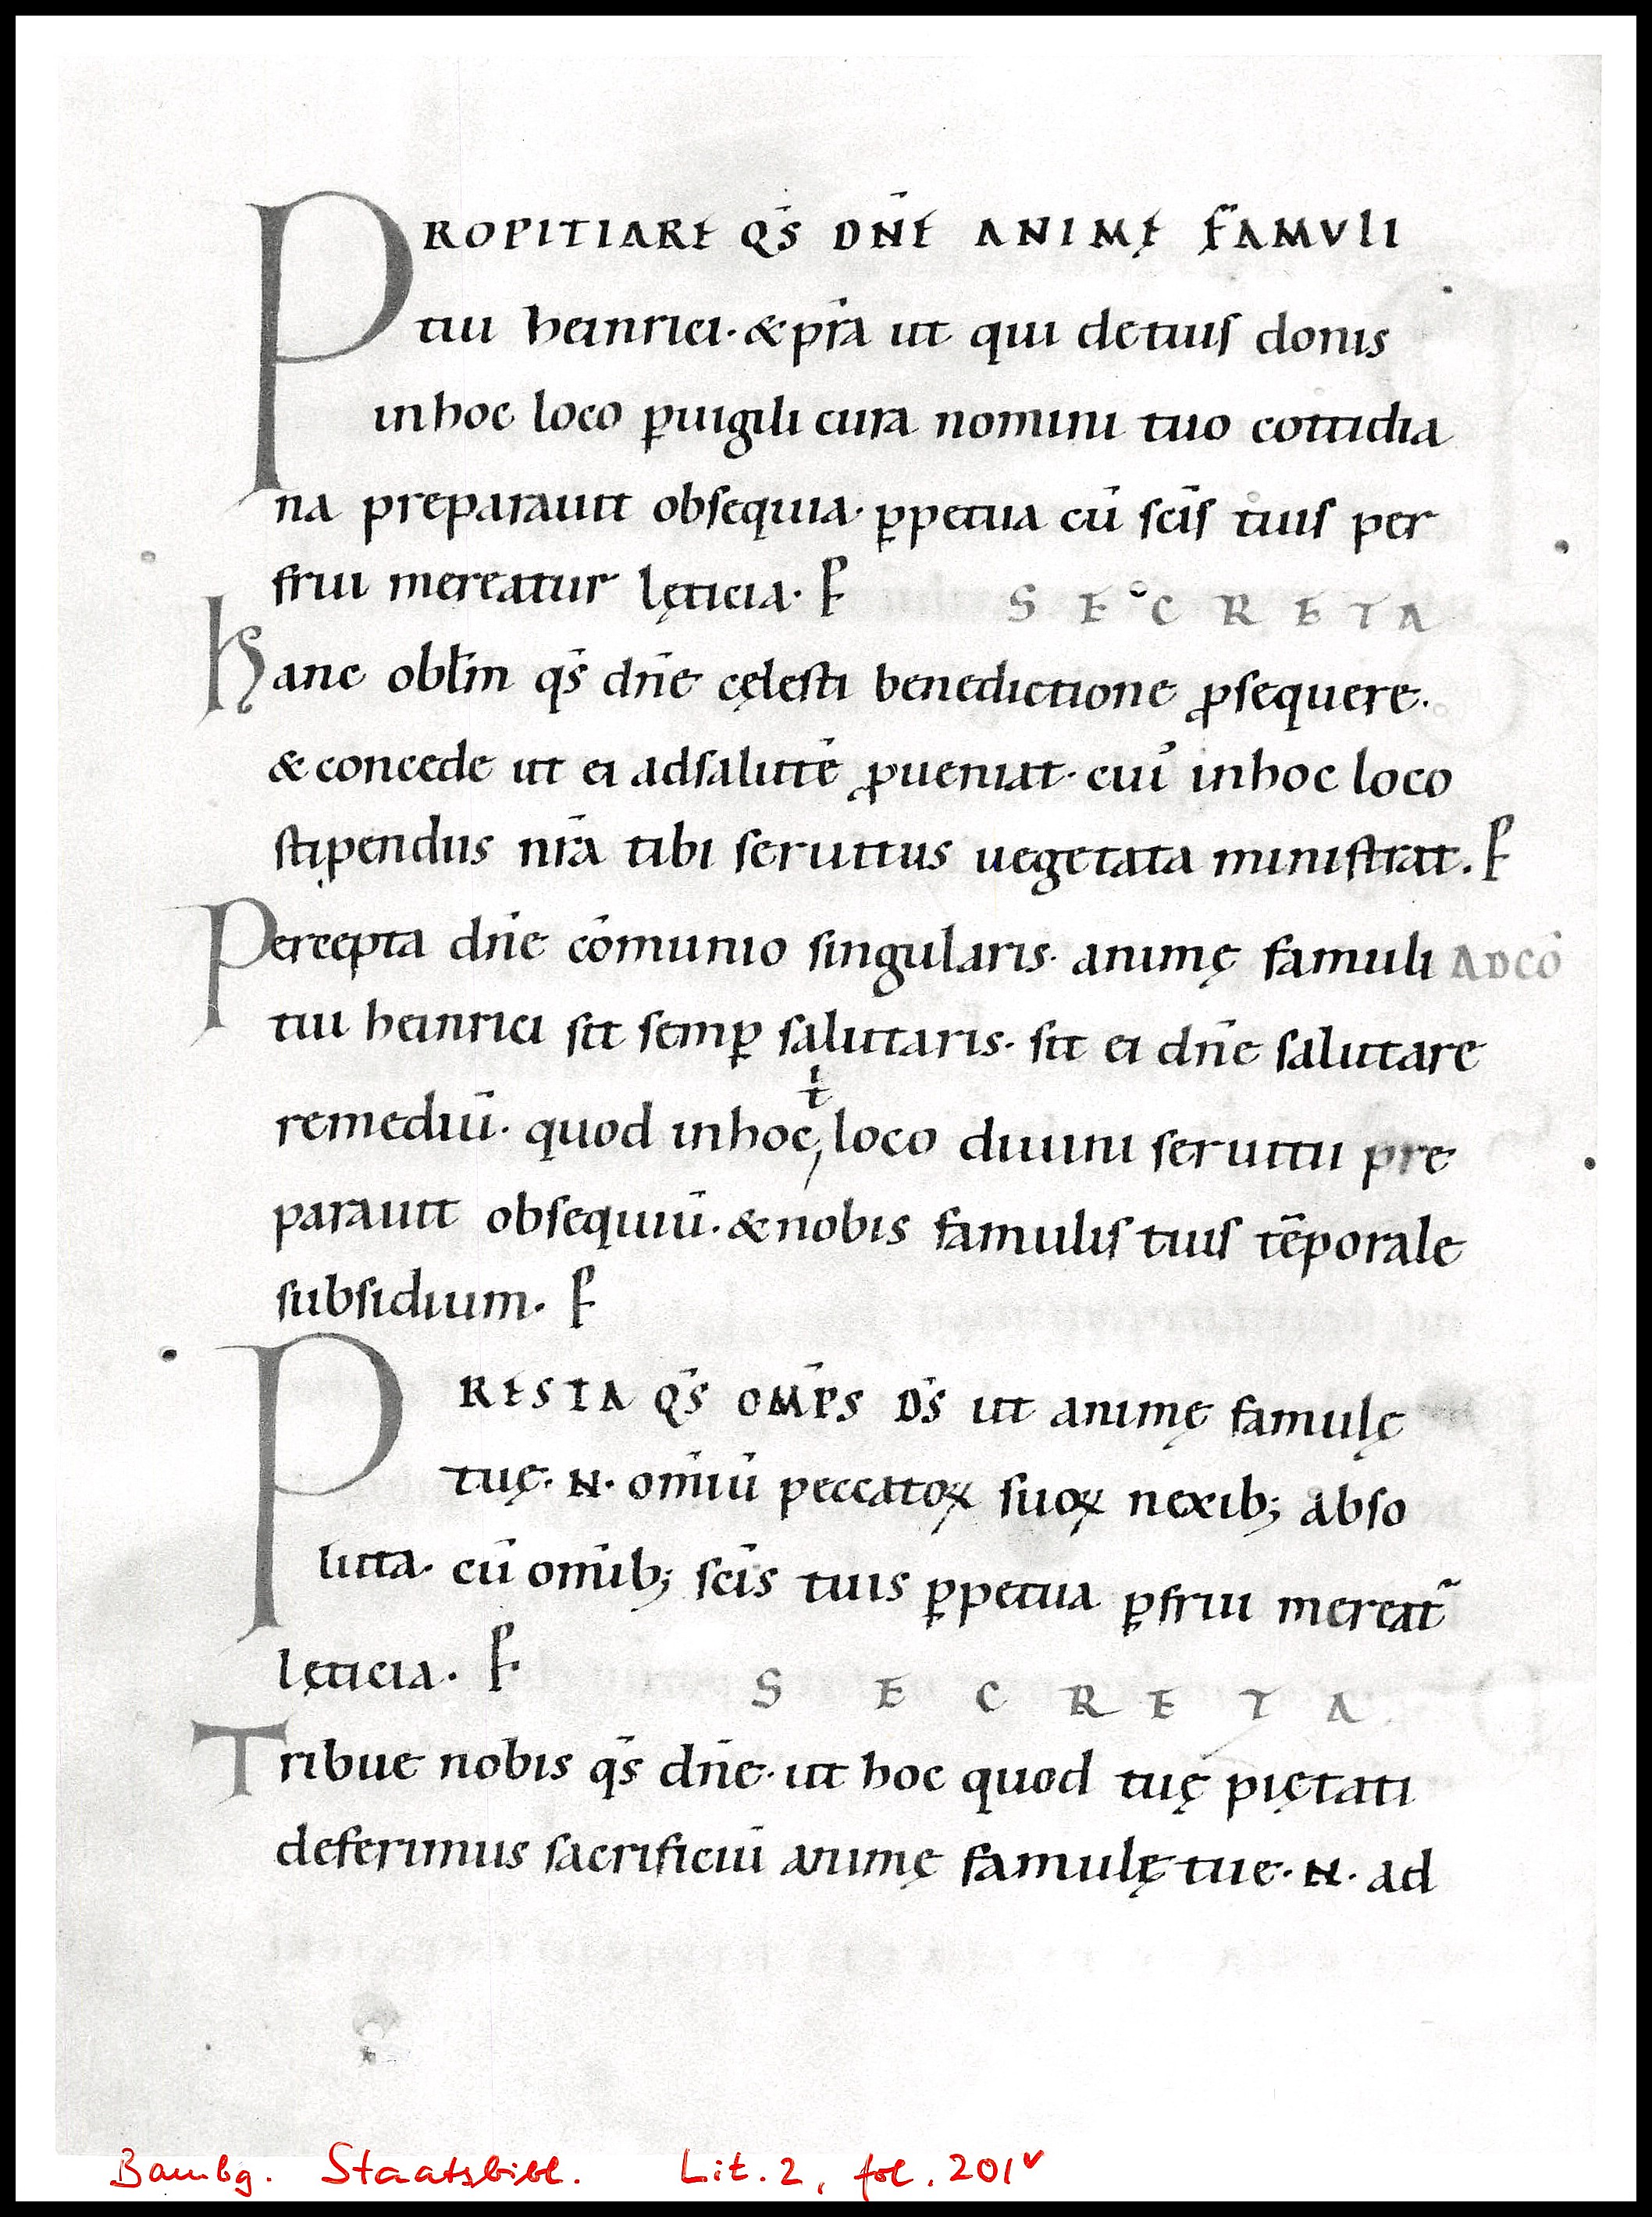 PROPITIARE QS̄ DN̄E ANIMĘ FAMVLI
tui heinrici· & pr̄a ut qui de tuis donis
in hoc loco ꝑuigili cura nomini tuo cottidia
na preparauit obsequia· ꝑpetua cū sc̄is tuis per
frui mereatur lęticia· ꝑ
SECRETA
Hanc obłm̄ qs̄ dn̄e cęlesti benedictione ꝓsequere·
& concede ut ei ad salutē ꝓueniat· cuı᷒ in hoc loco
stipendiis nr̄a tibi seruitus uegetata ministrat· ꝑ
Percepta dn̄e cōmunio singularis· animę famuli ADCŌ
tui heinrici sit semꝑ salutaris· sit ei dn̄e salutare
remediū· quod in hoc, loco diuini seruitii pre
ł
parauit obsequiū· & nobis famulis tuis tēporale
subsidium·
PRESTA QS̄ OMP̄S DS̄ ut animę famulę
tuę· N· om̄iū peccatoꝝ suoꝝ nexib; abso
luta· cū om̄ib; sc̄is tuis ꝑpetua ꝑfrui mereat̃
lęticia·
SECRETA
Tribue nobis qs̄ dn̄e· ut hoc quod tuę piętati
deferimus sacrificiū animę famulę tue· N· ad
Bambg. Staatsbibl. Lit. 2, fol. 201v